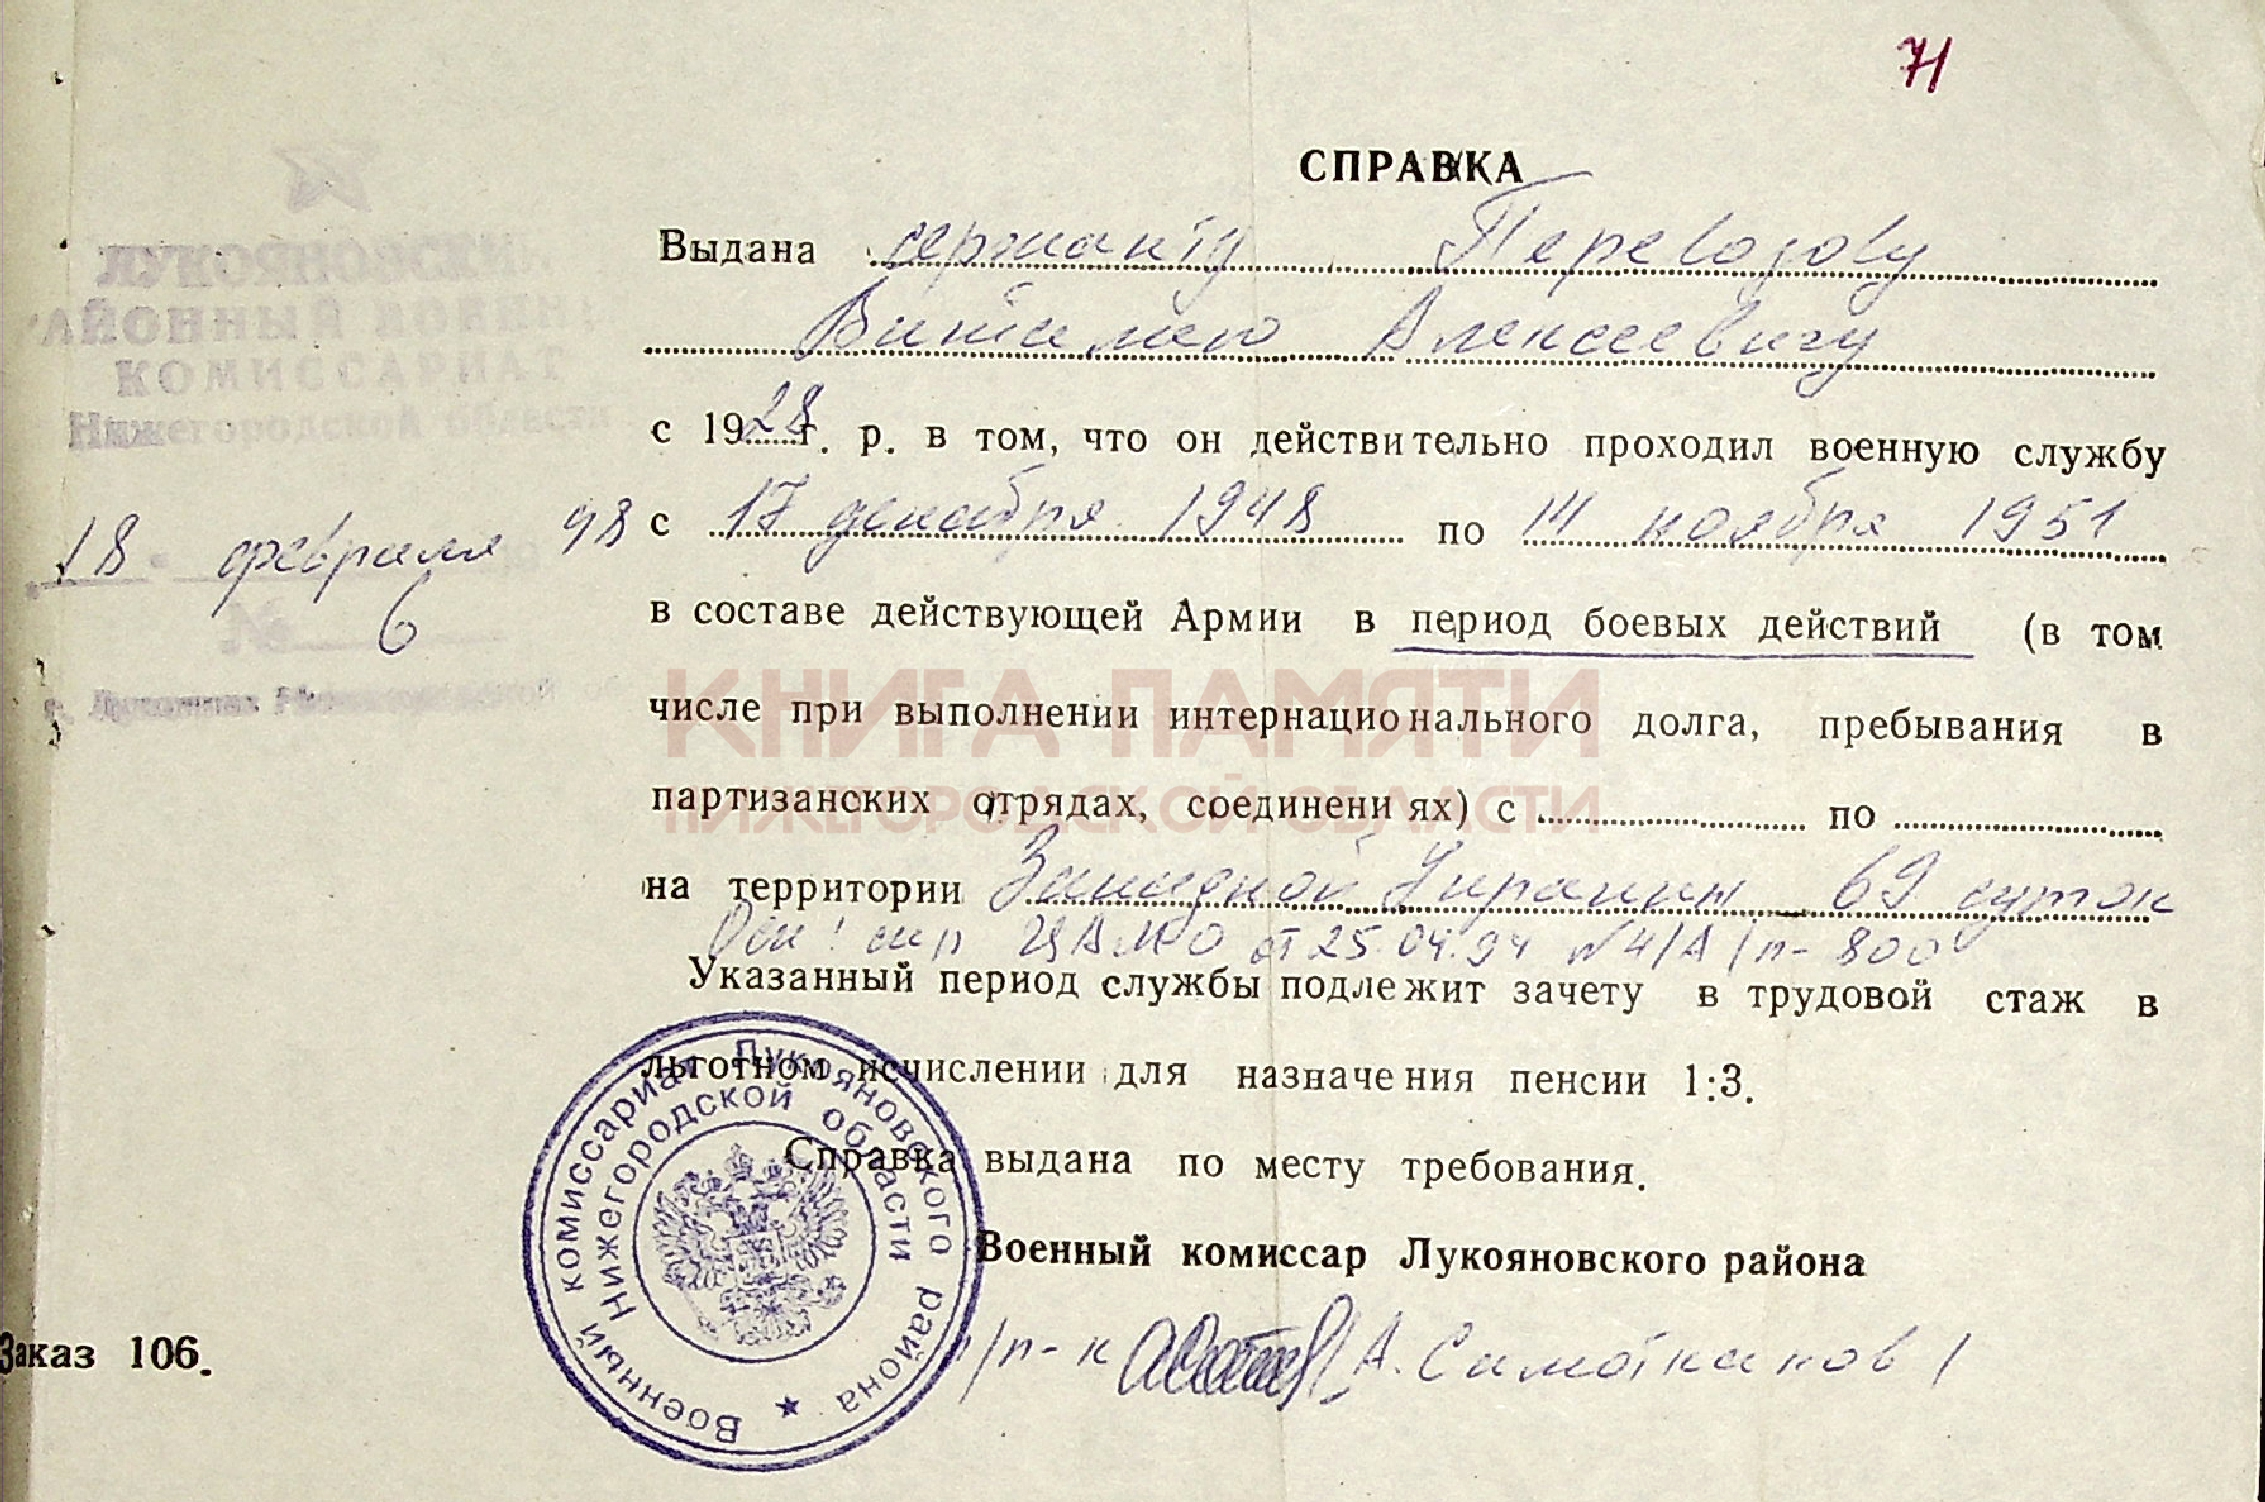 71
СПРАВКА
Выдана сержанту Перевозову
Виталию Алексеевичу
с 1928 г. р. в том, что он действительно проходил военную службу
с 17 декабря 1948 по 14 ноября 1951
в составе действующей Армии в период боевых действий (в том
числе при выполнении интернационального долга, пребывания в
партизанских отрядах, соединениях) с по
на территории Западной Украины – 69 суток
Осн: спр ЦАМО от 25.04.94 №4/А/п-800
Указанный период службы подлежит зачету в трудовой стаж в
льготном исчислении для назначения пенсии 1:3.
Справка выдана по месту требования.
Военный комиссар Лукояновского района
п/п-к /А. Симотканов/
ЛУКОЯНОВСКИЙ
РАЙОННЫЙ ВОЕННЫЙ
КОМИССАРИАТ
Нижегородской области
18 февраля 98
№ 6
г. Лукоянов Нижегородской
Заказ 106.
Военный комиссариат Лукояновского района
Нижегородской области
КНИГА ПАМЯТИ
НИЖЕГОРОДСКОЙ ОБЛАСТИ